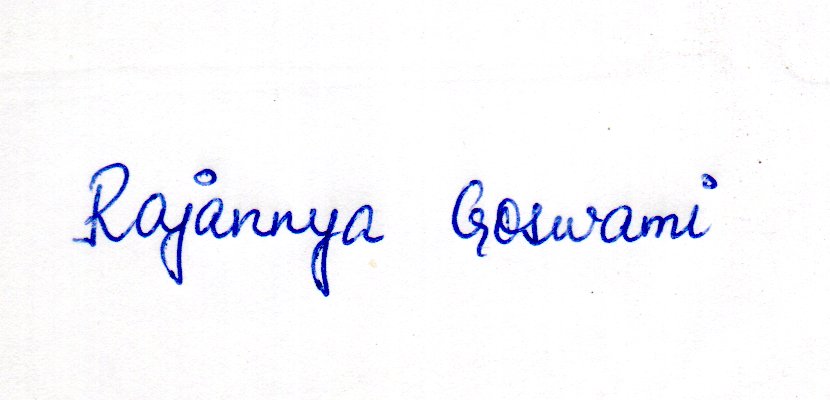 Rajannya Goswami